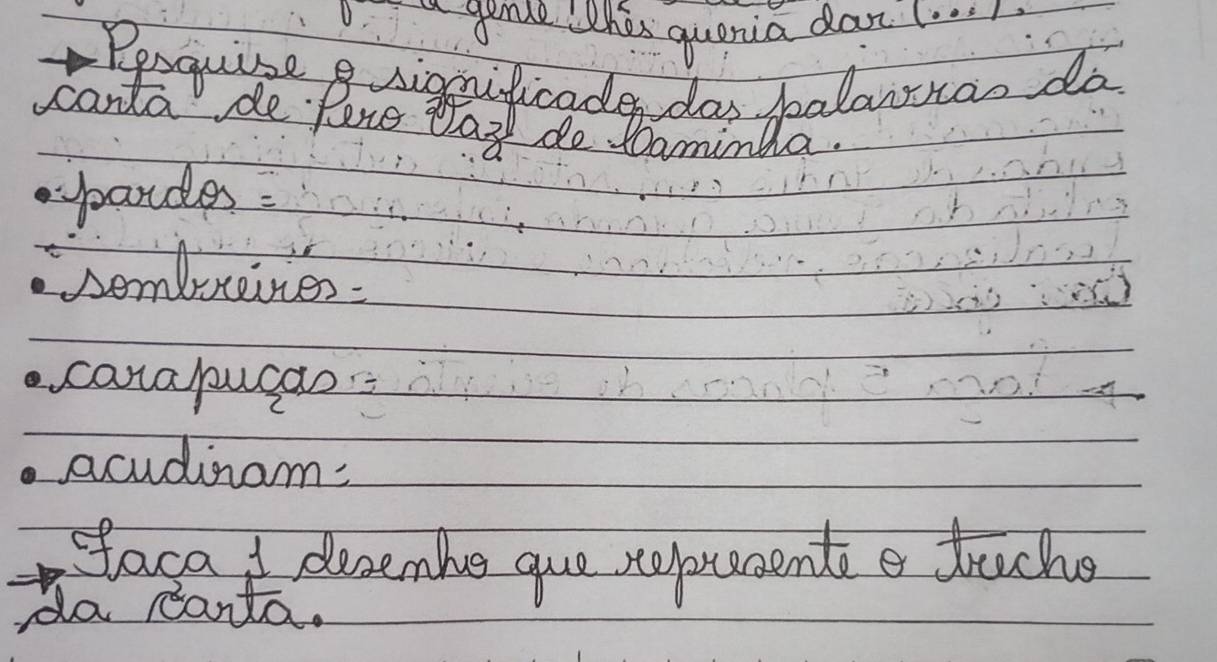 a gente lhes queria dar (...).
→ Pesquise o significado das palavras da
carta de Pero Vaz de Caminha.
• pardos =
• sombreiros =
• carapuças =
• acudiram =
→ Faça 1 desenho que represente o trecho
da carta.